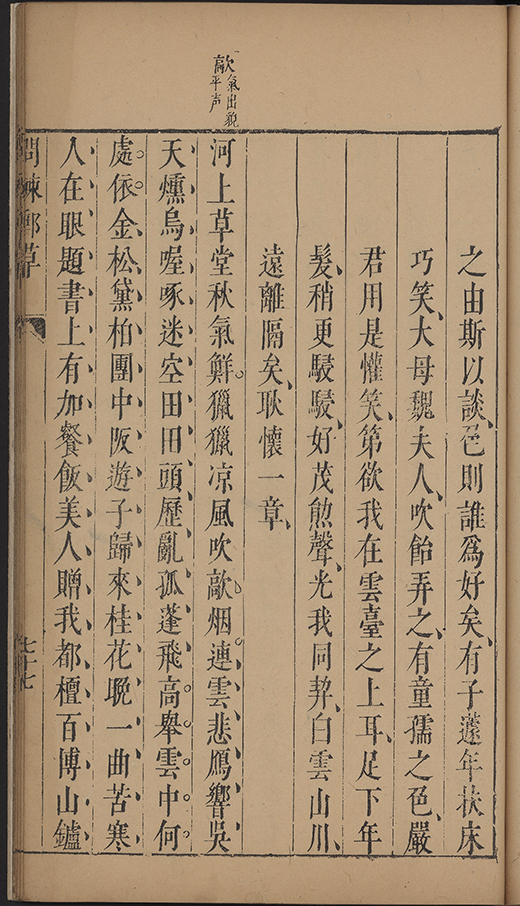 歊氣出貌
歊平声
之由斯以談邑則誰為好矣有子蘧年扶床
巧笑大母魏夫人吹飴弄之有童孺之色嚴
君用是懽笑第欲我在雲臺之上耳足下年
髮稍更駸駸好茂勉聲光我同契白雲山川
遠離隔矣耿懷一章
河上草堂秋氣鮮獵獵凉風吹歊烟連雲悲鴈響吳
天燻烏喔啄迷空田田頭歷亂孤蓬飛高舉雲中何
處依金松黛柏團中阪遊子歸來桂花晚一曲苦寒
人在眼題書上有加餐飯美人贈我都檀百博山鑪
問棘郵草
七十七